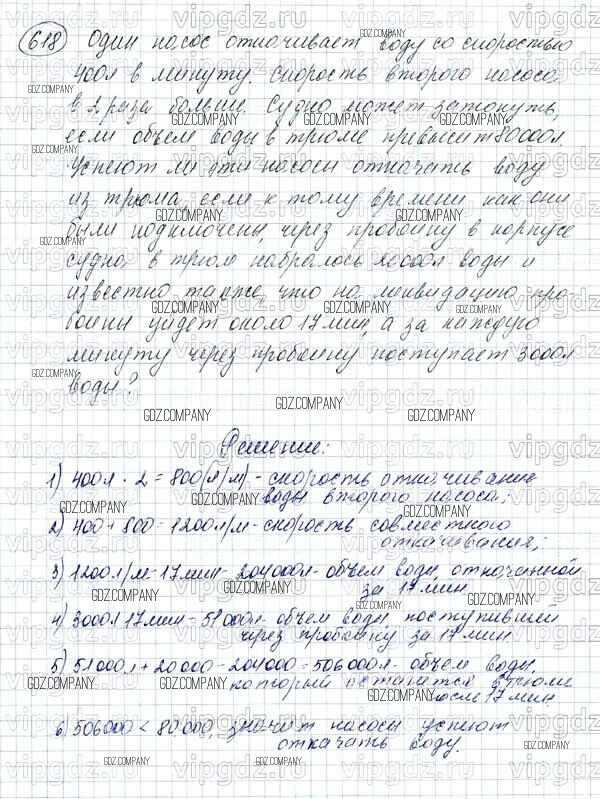 618 Один насос откачивает воду со скоростью
400л в минуту. Скорость второго насоса
в 2 раза больше. Судно может затонуть,
если объем воды в трюме превысит 80000л.
Успеют ли эти насосы откачать воду
из трюма, если к тому времени как они
были подключены, через пробоину в корпусе
судна в трюм набралось 20000л воды и
известно также, что на ликвидацию про-
боины уйдет около 17 мин, а за каждую
минуту через пробоину поступает 3000л
воды?
Решение:
1) 400л · 2 = 800(л/м) - скорость откачивание
воды второго насоса;
2) 400 + 800 = 1200л/м - скорость совместного
откачивания;
3) 1200л/м = 17мин = 204000л - объем воды, откачанной
за 17 мин
4) 3000л 17 мин = 51000л - объем воды, поступившей
через пробоину за 17 мин
5) 51000л + 20000 - 204000 = 506000л - объем воды,
который останется в трюме
после 17 мин.
6. 506000 < 80000, значит насосы успеют
откачать воду.
GDZ.COMPANY
vipgdz.ru